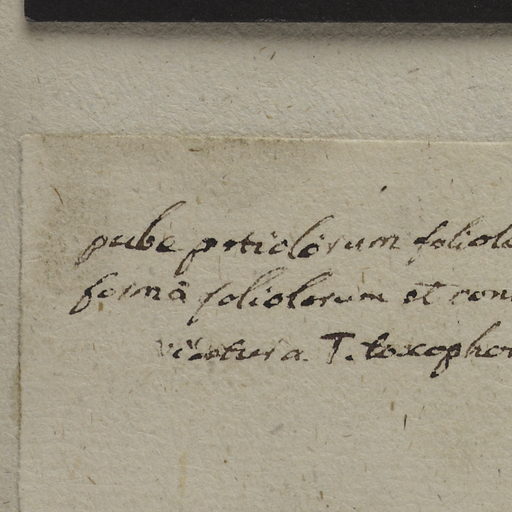 pube petiolorum foliolo
formâ foliolorum et con
T. toxophor